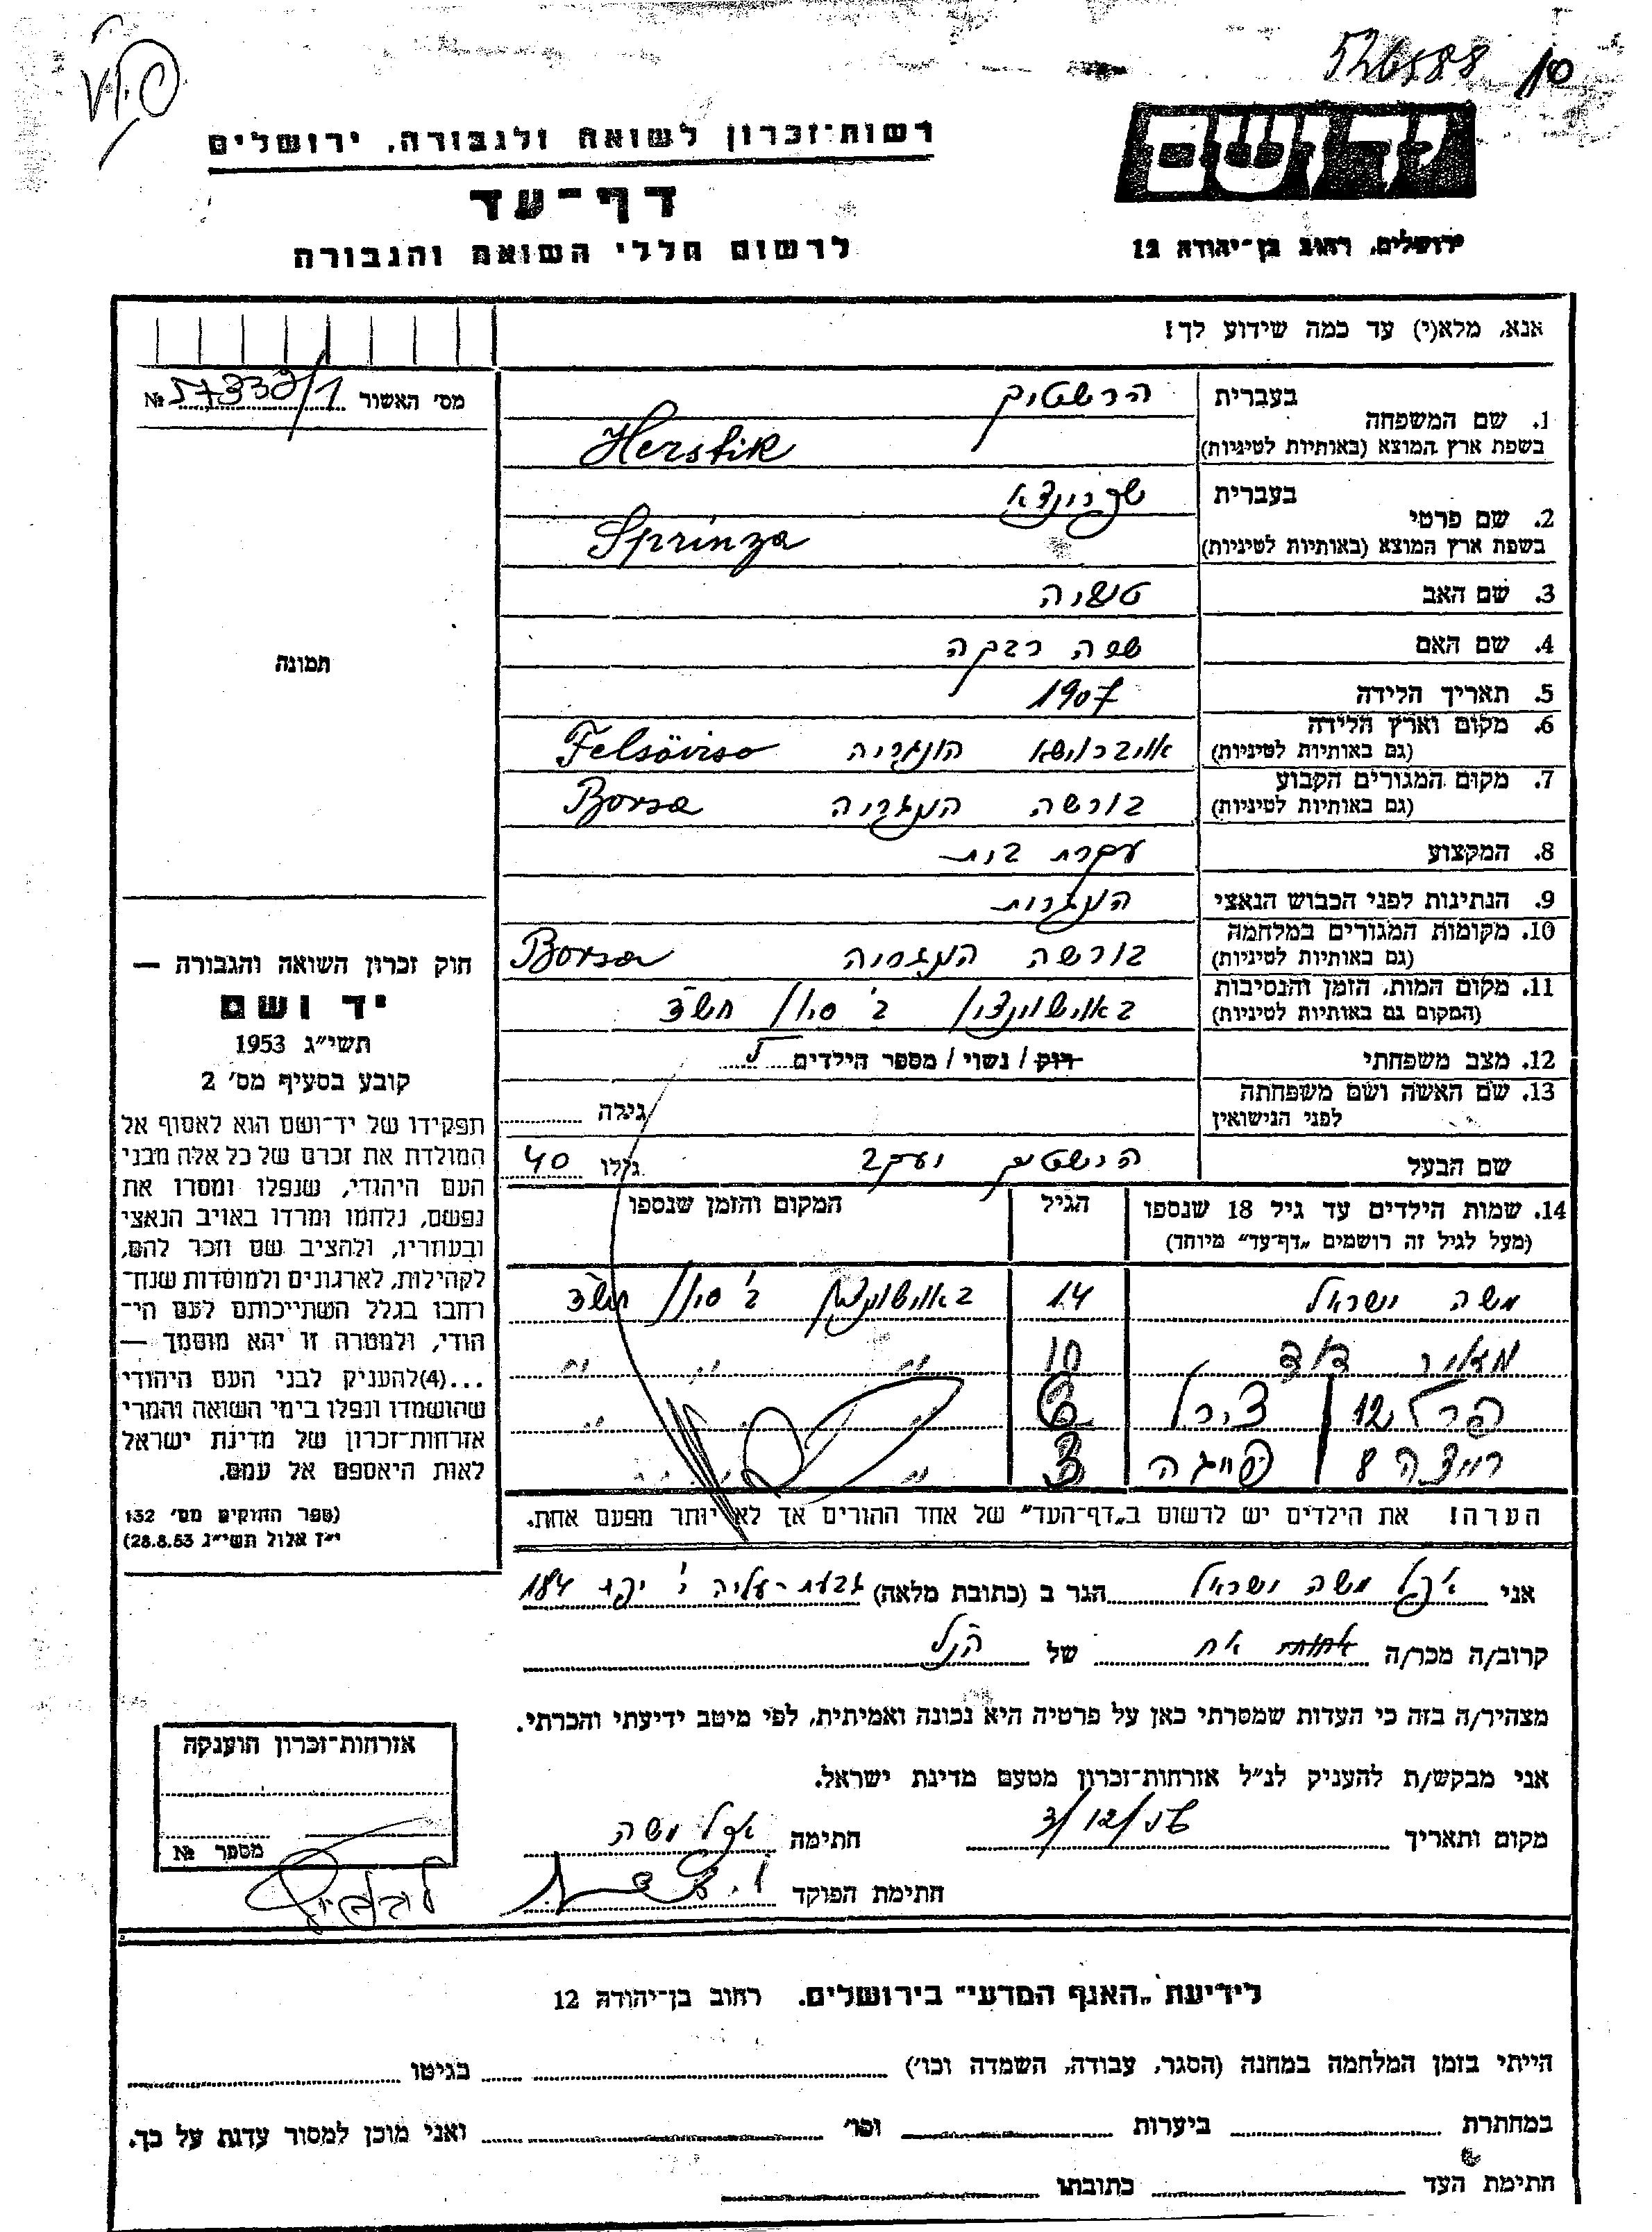 526588 10
רשות־זכרון לשואה ולגבורה, ירושלים
יד ושם
דף־עד
לרשום חללי השואה והגבורה
ירושלים, רחוב בן־יהודה 12
אנא, מלא(י) עד כמה שידוע לך!
מס׳ האשור 57339/1 №
1. שם המשפחה
בעברית הרשטיק
בשפת ארץ המוצא (באותיות לטיניות) Herstik
2. שם פרטי
בעברית שפרינצא
בשפת ארץ המוצא (באותיות לטיניות) Sprinza
3. שם האב
4. שם האם רבקה
5. תאריך הלידה 1907
6. מקום וארץ הלידה הונגריה Felsöviso
(גם באותיות לטיניות)
7. מקום המגורים הקבוע בורשה הונגריה Borsa
(גם באותיות לטיניות)
8. המקצוע עקרת בית
9. הנתינות לפני הכבוש הנאצי הונגרית
10. מקומות המגורים במלחמה בורשה הונגריה Borsa
(גם באותיות לטיניות)
11. מקום המות, הזמן והנסיבות באוישוויצין ב׳ סיון תש״ד
(המקום גם באותיות לטיניות)
12. מצב משפחתי רוק / נשוי / מספר הילדים
13. שם האשה ושם משפחתה
לפני הנישואין גילה
שם הבעל הרשטיק יעקב גילו 40
14. שמות הילדים עד גיל 18 שנספו הגיל המקום והזמן שנספו
(מעל לגיל זה רושמים „דף־עד״ מיוחד)
משה ישראל 14 באוישוויצין ב׳ סיון תש״ד
מאיר דוד 10 ״ ״ ״
פרל 12 צירל 6 ״ ״
רויזה 8 פייגה 3 ״ ״
הערה! את הילדים יש לרשום ב„דף־העד״ של אחד ההורים אך לא יותר מפעם אחת.
אני משה ישראל הגר ב (כתובת מלאה) גבעת־עליה 184
קרוב/ה מכר/ה אחות אח של הנ״ל
מצהיר/ה בזה כי העדות שמסרתי כאן על פרטיה היא נכונה ואמיתית, לפי מיטב ידיעתי והכרתי.
אני מבקש/ת להעניק לנ״ל אזרחות־זכרון מטעם מדינת ישראל.
מקום ותאריך 3/12/56 חתימה משה
חתימת הפוקד
תמונה
חוק זכרון השואה והגבורה —
יד ושם
תשי״ג 1953
קובע בסעיף מס׳ 2
תפקידו של יד־ושם הוא לאסוף אל
המולדת את זכרם של כל אלה מבני
העם היהודי, שנפלו ומסרו את
נפשם, נלחמו ומרדו באויב הנאצי
ובעוזריו, ולהציב שם וזכר להם,
לקהילות, לארגונים ולמוסדות שנח־
רחבו בגלל השתייכותם לעם הי־
הודי, ולמטרה זו יהא מוסמך —
...(4)להעניק לבני העם היהודי
שהושמדו ונפלו בימי השואה והמרי
אזרחות־זכרון של מדינת ישראל
לאות היאספם אל עמם.
(ספר החוקים מס׳ 132
י״ז אלול תשי״ג 28.8.53)
אזרחות־זכרון הוענקה
מספר №
לידיעת „האגף המדעי״ בירושלים. רחוב בן־יהודה 12
הייתי בזמן המלחמה במחנה (הסגר, עבודה, השמדה וכו׳) בגיטו
במחתרת ביערות וכו׳ ואני מוכן למסור עדות על כך.
חתימת העד כתובתו